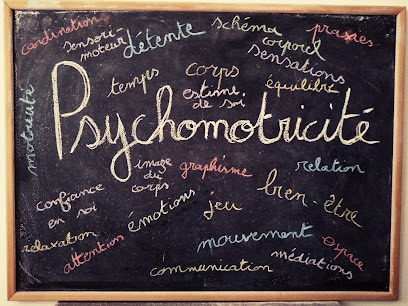 coordinations
sensori-
moteur
détente
schéma
corporel
praxies
sensations
temps
corps
estime
de soi
équilibre
motricité
Psychomotricité
image
du
corps
graphisme
relation
confiance
en soi
émotions
jeu
bien-être
relaxation
attention
mouvement
espace
médiations
communication